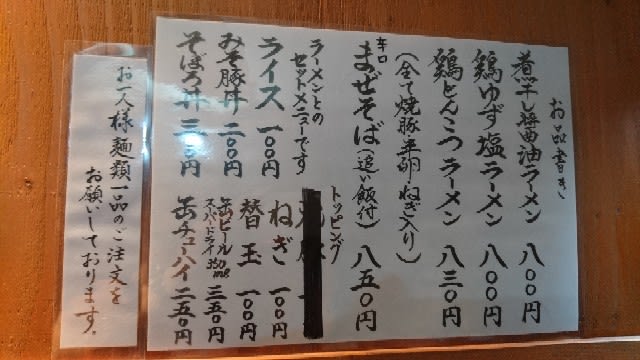 お品書き
煮干し醤油ラーメン 八〇〇円
鶏ゆず塩ラーメン 八〇〇円
鶏とんこつラーメン 八三〇円
(全て焼豚・半卵・ねぎ入り)
辛口 まぜそば(追い飯付) 八五〇円
ラーメンとの
セットメニューです
ライス 一〇〇円
みそ豚丼 二〇〇円
そぼろ丼 三一〇円
トッピング
ねぎ 一〇〇円
替玉 一〇〇円
缶ビール
スーパードライ 350ml 三五〇円
缶チューハイ 二五〇円
お一人様麺類一品のご注文を
お願いしております。